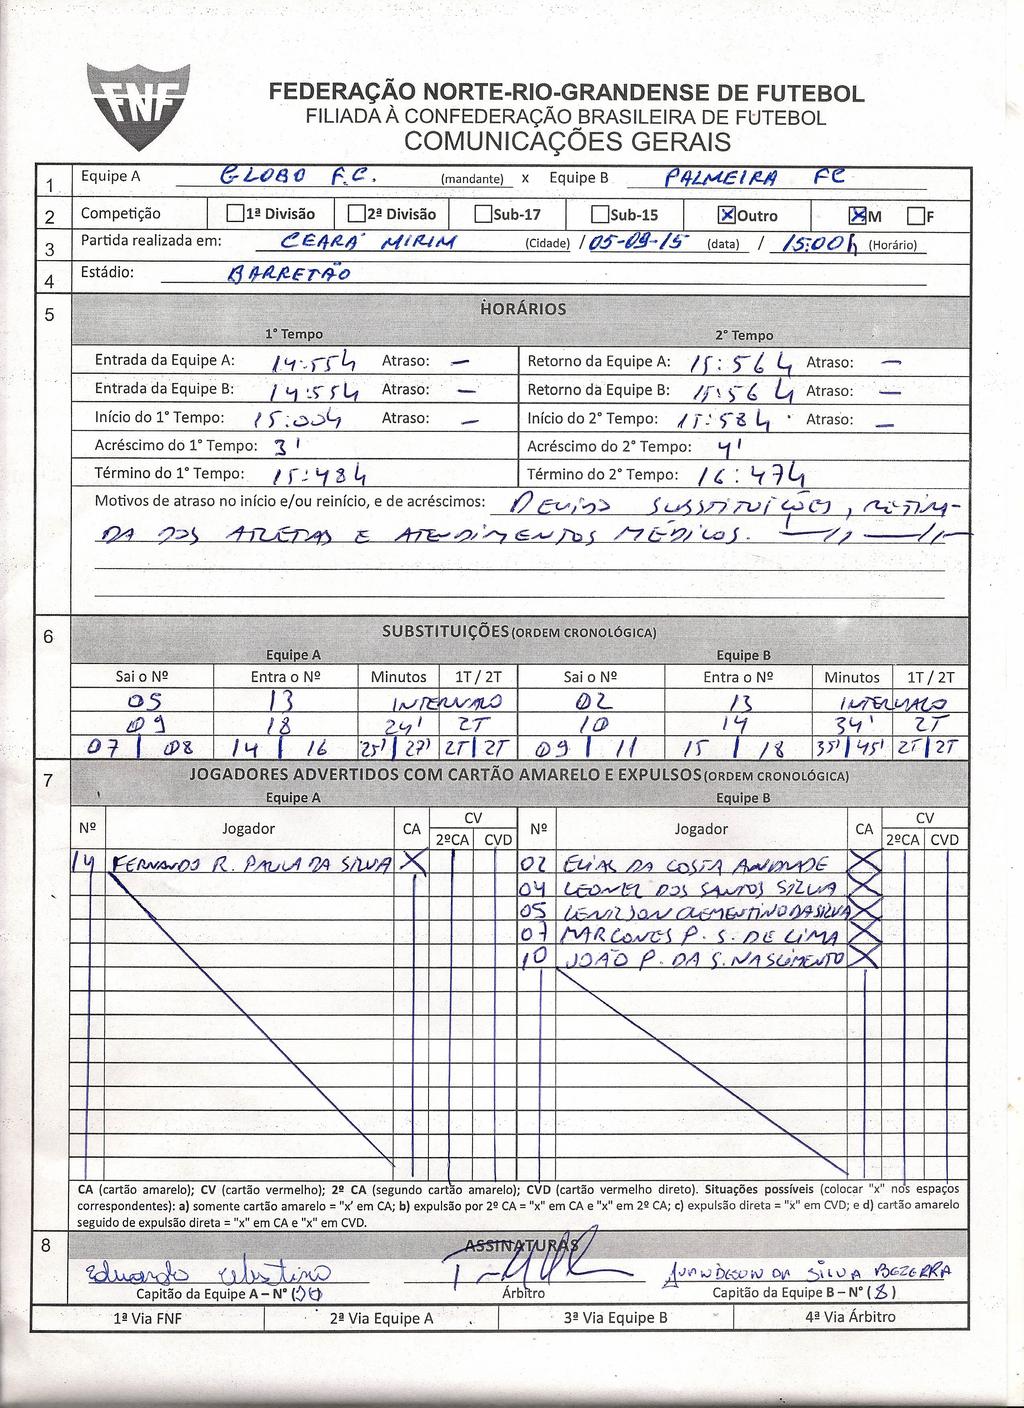 FNF
FEDERAÇÃO NORTE-RIO-GRANDENSE DE FUTEBOL
FILIADA À CONFEDERAÇÃO BRASILEIRA DE FUTEBOL
COMUNICAÇÕES GERAIS
1 Equipe A GLOBO F.C. (mandante) x Equipe B PALMEIRA FC
2 Competição 1ª Divisão 2ª Divisão Sub-17 Sub-15 X Outro X M F
3 Partida realizada em: CEARÁ MIRIM (Cidade) / 05-09-15 (data) / 15:00h (Horário)
4 Estádio: BARRETÃO
5 HORÁRIOS
1º Tempo 2º Tempo
Entrada da Equipe A: 14:55h Atraso: — Retorno da Equipe A: 15:56h Atraso: —
Entrada da Equipe B: 14:55h Atraso: — Retorno da Equipe B: 15:56h Atraso: —
Início do 1º Tempo: 15:00h Atraso: — Início do 2º Tempo: 15:58h Atraso: —
Acréscimo do 1º Tempo: 3' Acréscimo do 2º Tempo: 4'
Término do 1º Tempo: 15:48h Término do 2º Tempo: 16:47h
Motivos de atraso no início e/ou reinício, e de acréscimos: DEVIDO SUBSTITUIÇÕES, RETIRA-
DA DOS ATLETAS E ATENDIMENTOS MÉDICOS. —//—//—
6 SUBSTITUIÇÕES (ORDEM CRONOLÓGICA)
Equipe A Equipe B
Sai o Nº Entra o Nº Minutos 1T / 2T Sai o Nº Entra o Nº Minutos 1T / 2T
05 13 INTERVALO 02 13 INTERVALO
09 18 24' 2T 10 14 34' 2T
07 | 08 14 | 16 25' | 27' 2T | 2T 09 | 11 15 | 18 35' | 45' 2T | 2T
7 JOGADORES ADVERTIDOS COM CARTÃO AMARELO E EXPULSOS (ORDEM CRONOLÓGICA)
Equipe A Equipe B
Nº Jogador CA CV 2ºCA CVD Nº Jogador CA CV 2ºCA CVD
14 FERNANDO R. PAULA DA SILVA X 02 ELIAS DA COSTA ANDRADE X
04 LEONEL DOS SANTOS SILVA X
05 LENILSON CLEMENTINO DA SILVA X
07 MARCONES P. S. DE LIMA X
10 JOÃO P. DA S. NASCIMENTO X
CA (cartão amarelo); CV (cartão vermelho); 2º CA (segundo cartão amarelo); CVD (cartão vermelho direto). Situações possíveis (colocar "x" nos espaços
correspondentes): a) somente cartão amarelo = "x' em CA; b) expulsão por 2º CA = "x" em CA e "x" em 2º CA; c) expulsão direta = "x" em CVD; e d) cartão amarelo
seguido de expulsão direta = "x" em CA e "x" em CVD.
8 ASSINATURAS
Eduardo Celestino JUANDESON DA SILVA BEZERRA
Capitão da Equipe A – Nº ( ) Árbitro Capitão da Equipe B – Nº (8)
1ª Via FNF 2ª Via Equipe A 3ª Via Equipe B 4ª Via Árbitro